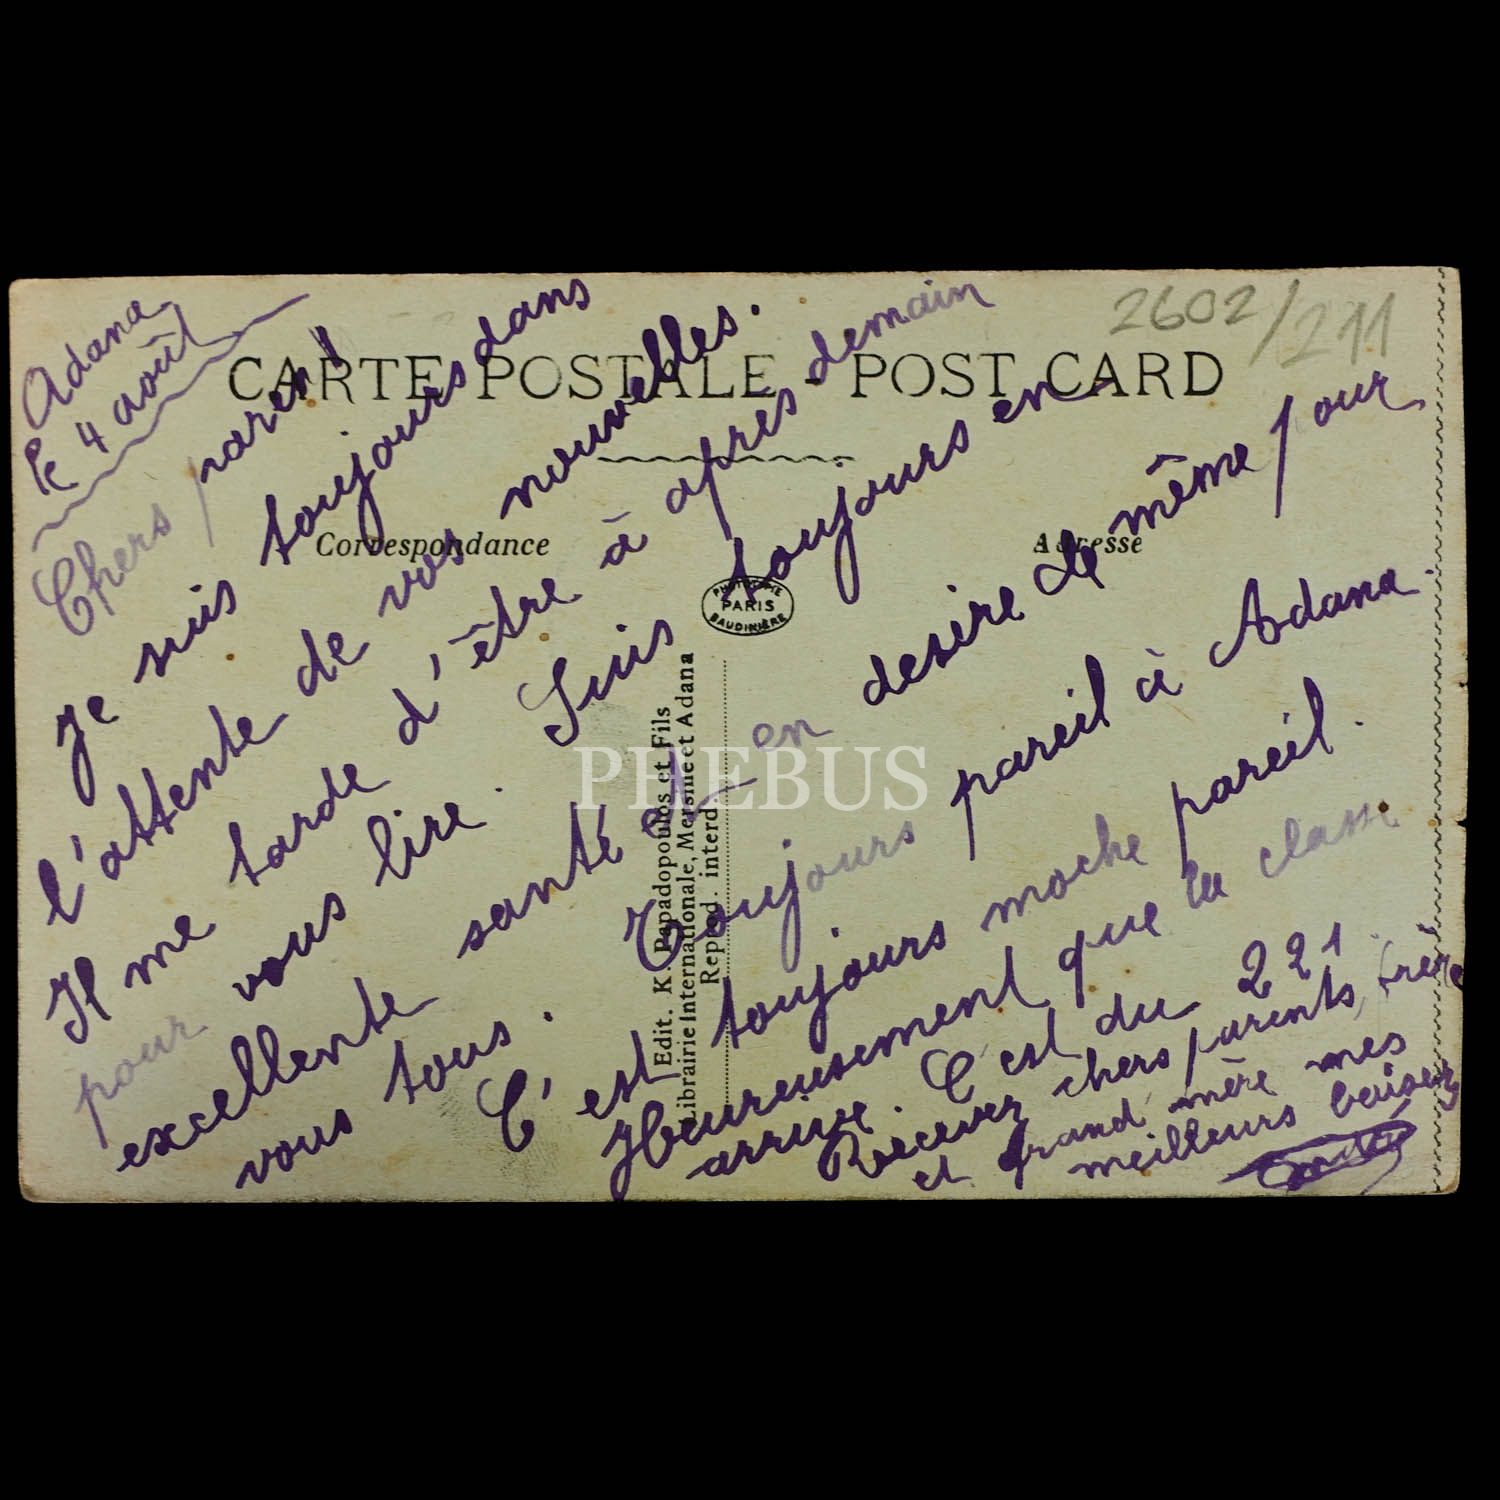 2602/211
CARTE POSTALE - POST CARD
Correspondance
Adresse
PHOTOTYPIE
PARIS
BAUDINIÈRE
Edit. K. Papadopoulos et Fils
Librairie Internationale, Mersine et Adana
Reprod. interd.
PHEBUS
Adana
le 4 août
Chers parents
Je suis toujours dans
l'attente de vos nouvelles.
Il me tarde d'être à après demain
pour vous lire. Suis toujours en
excellente santé et en desire de même pour
vous tous. Toujours pareil à Adana.
C'est toujours moche pareil.
Heureusement que la classe
arrive. C'est du 221.
Recevez chers parents, frère
et grand mère mes
meilleurs baisers